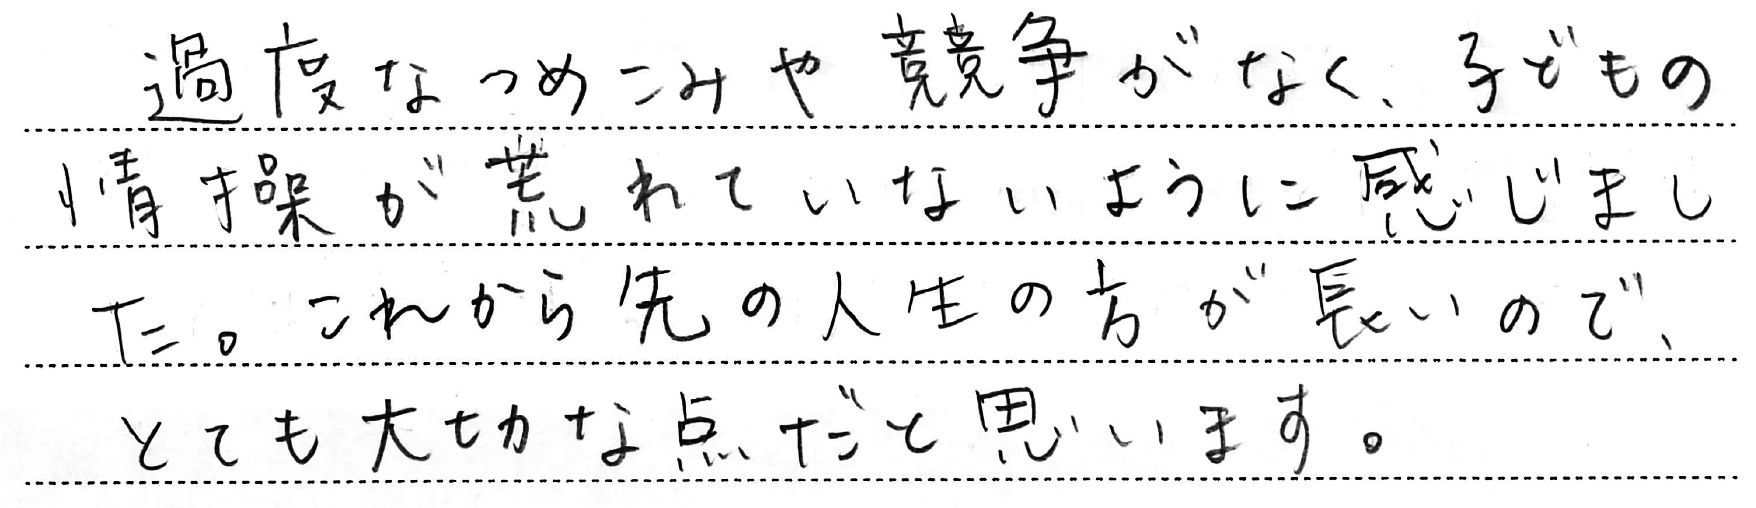 過度なつめこみや競争がなく、子どもの
情操が荒れていないように感じまし
た。これから先の人生の方が長いので、
とても大切な点だと思います。